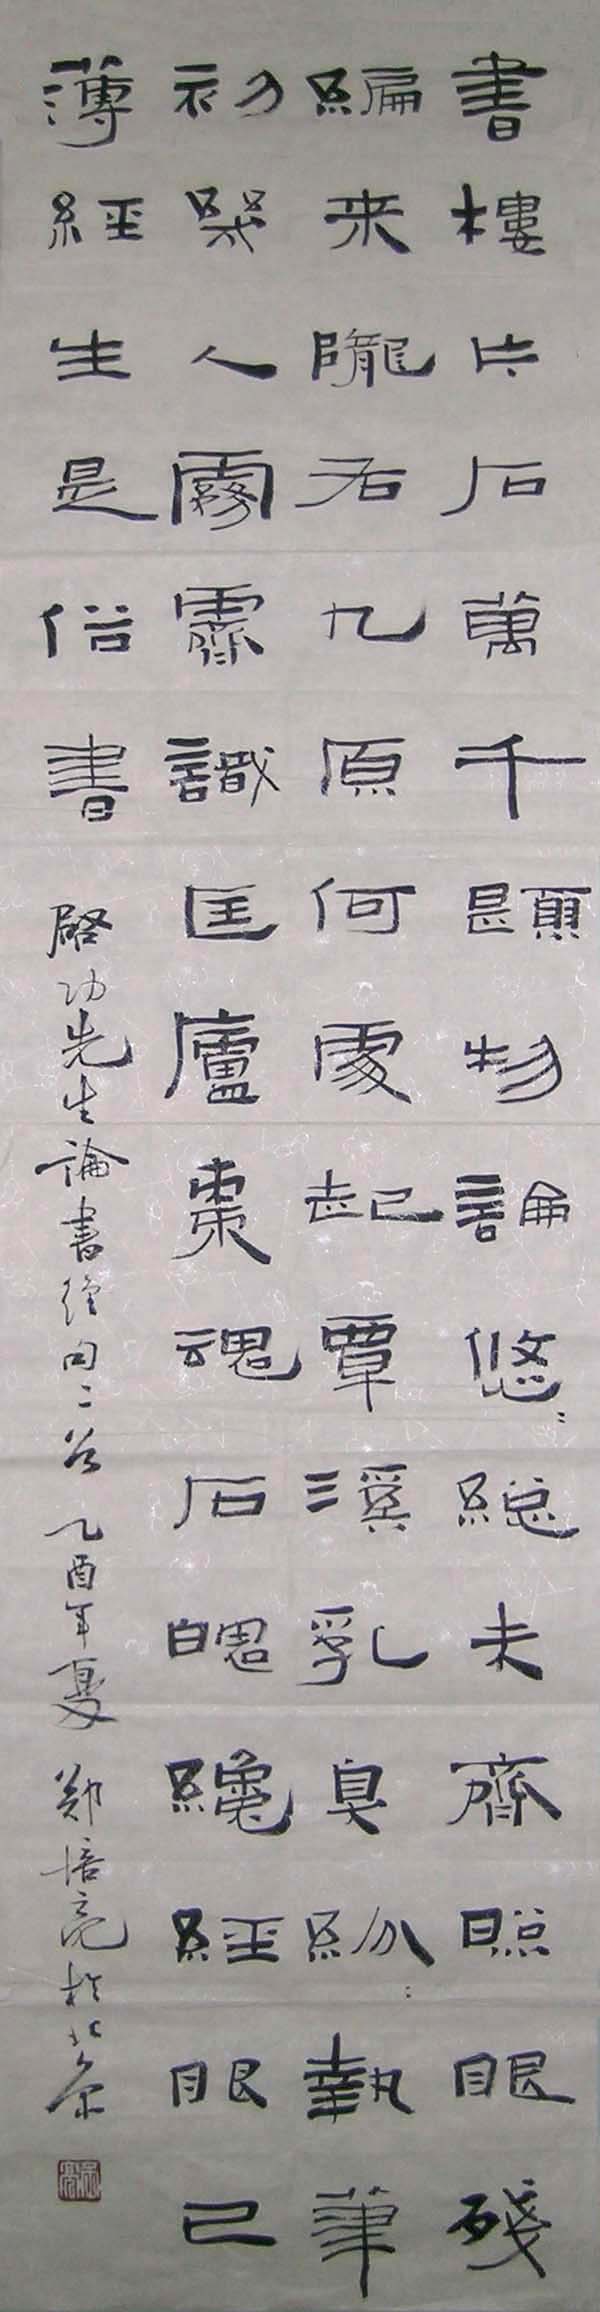 書樓片石萬千題物論悠〻總未齊照眼殘
編來隴右九原何處起覃溪乳臭紛〻執筆
初幾人霧霽識匡廬棗魂石魄纔經眼已
薄經生是俗書 啓功先生論書絕句二首 乙酉年夏 鄭培亮於北京